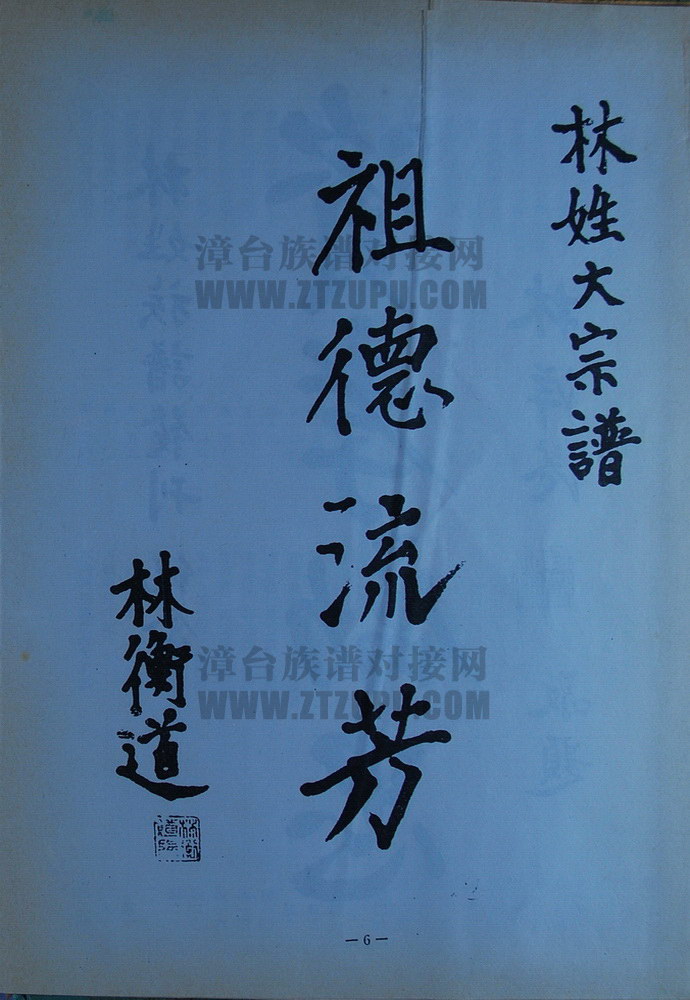 林姓大宗譜
祖德流芳
林衡道
漳台族谱对接网
WWW.ZTZUPU.COM
漳台族谱对接网
WWW.ZTZUPU.COM
—6—